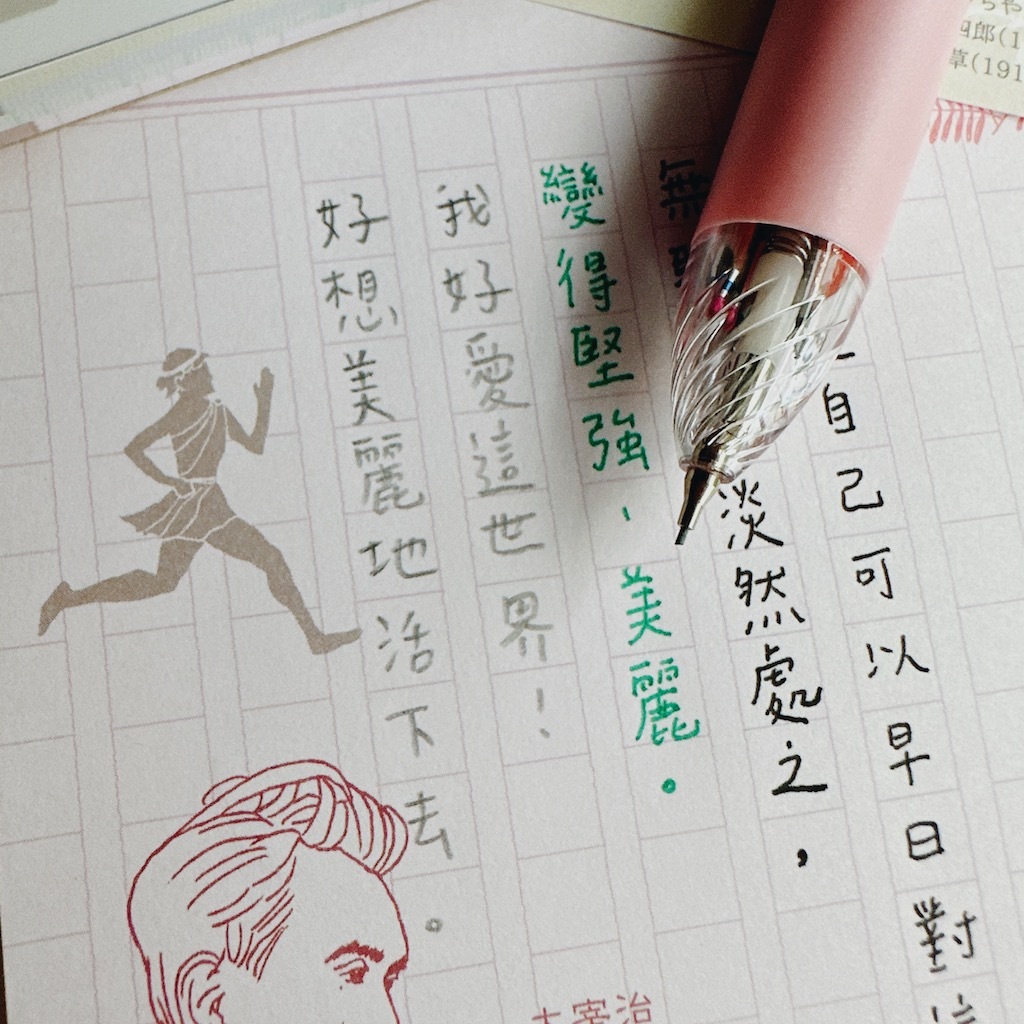 自己可以早日對
淡然處之，
變得堅強、美麗。
我好愛這世界！
好想美麗地活下去。
太宰治
四郎(1
草(191